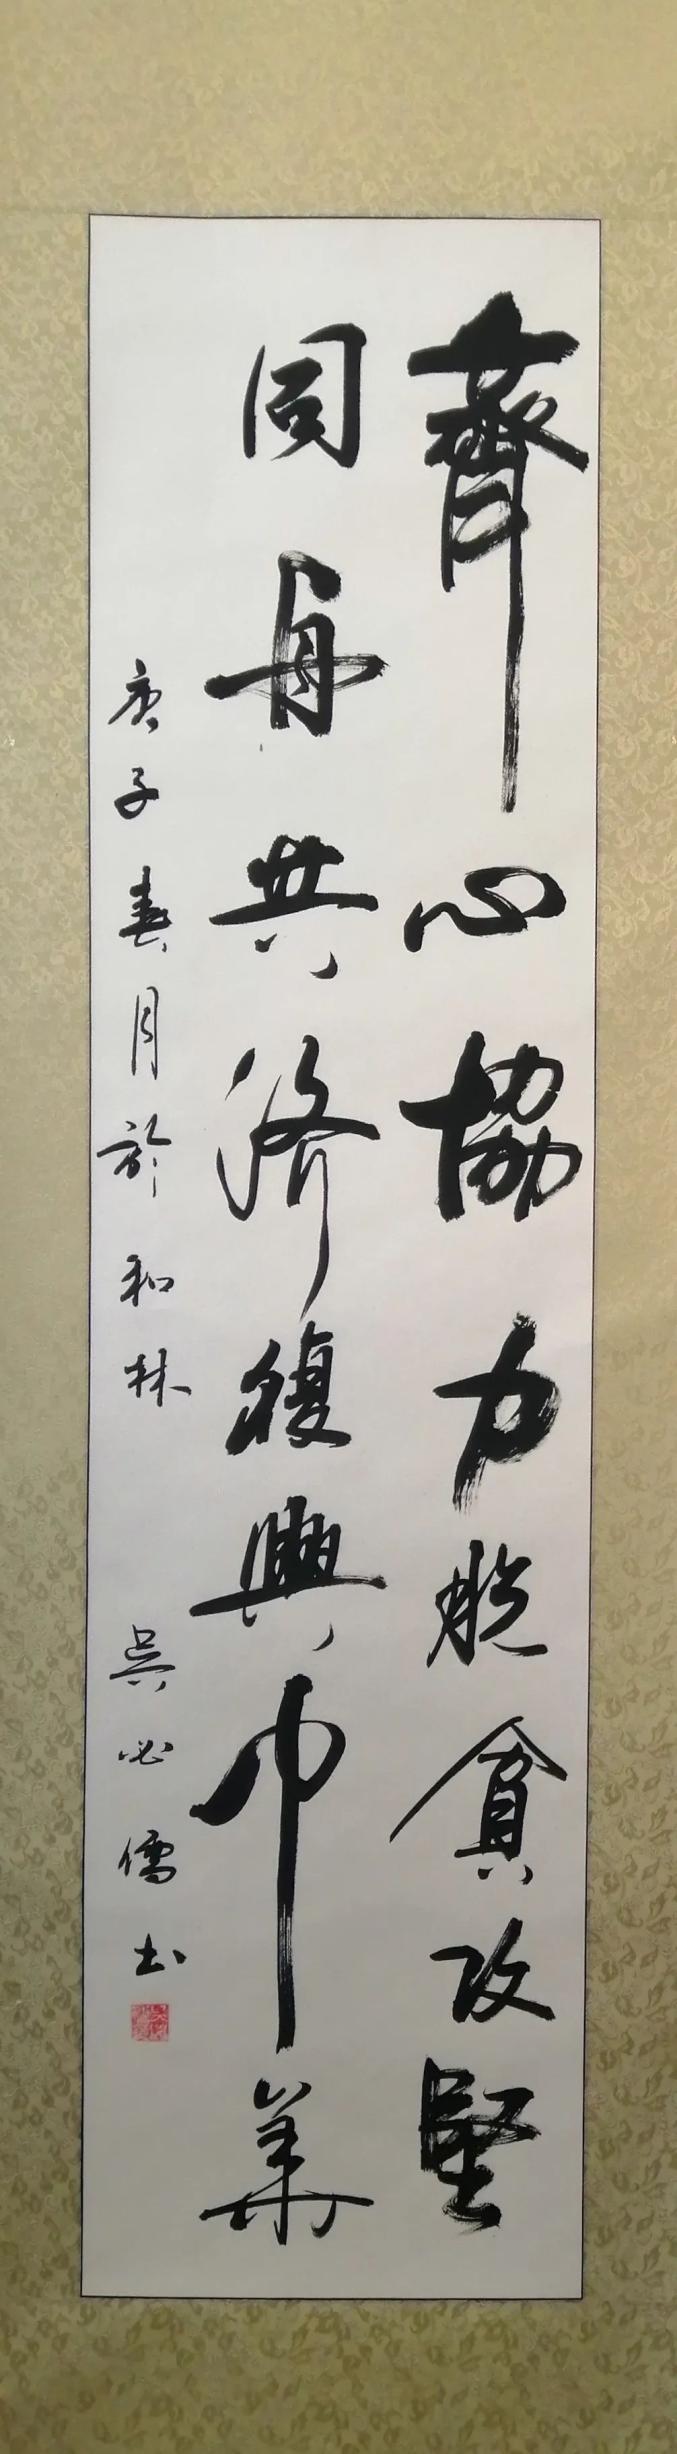 齊心協力脫貧攻堅
同舟共濟復興中華
庚子春月於和林
吳必儒书